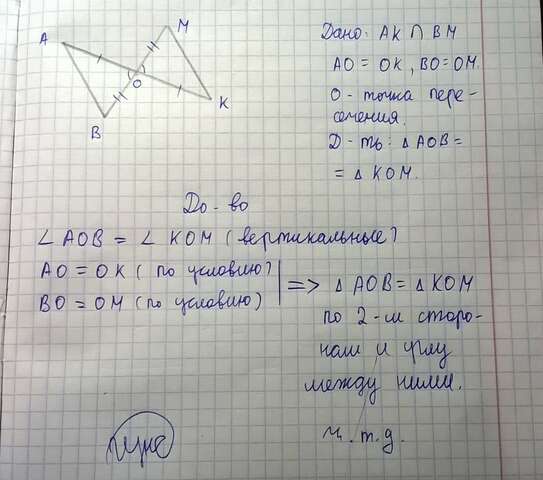 A
M
O
B
K
Дано: AK ∩ BM
AO = OK, BO = OM.
O - точка пере-
сечения.
Д-ть: △ AOB =
= △ KOM.
До-во
∠ AOB = ∠ KOM (вертикальные)
AO = OK (по условию)
BO = OM (по условию)
=> △ AOB = △ KOM
по 2-м сторо-
нам и углу
между ними.
ч.т.д.